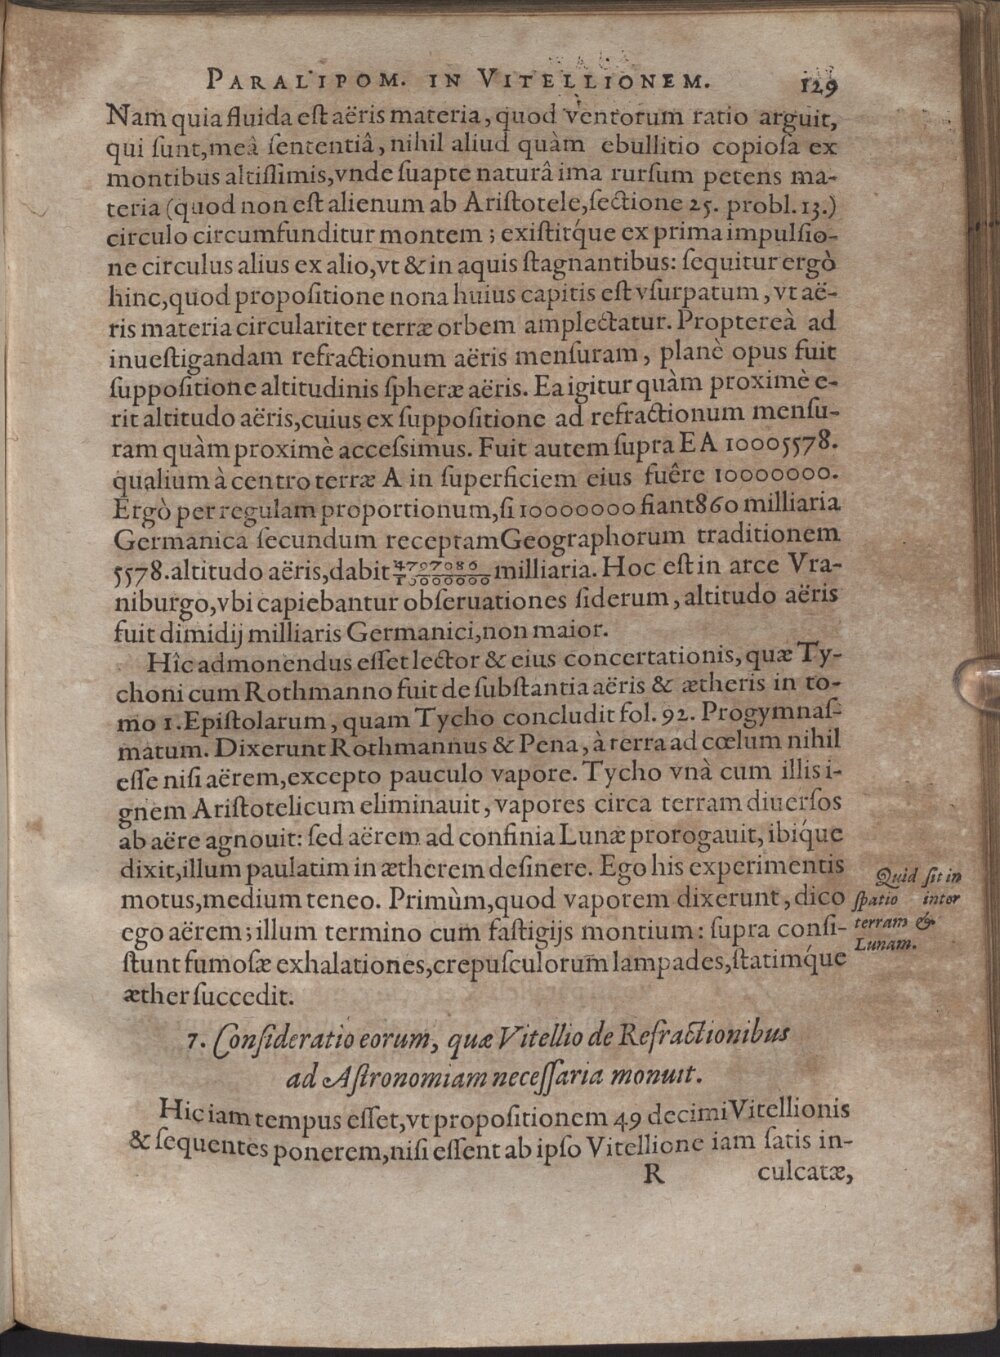 PARALIPOM. IN VITELLIONEM. 129
Nam quia fluida est aëris materia, quod ventorum ratio arguit,
qui sunt, meâ sententiâ, nihil aliud quàm ebullitio copiosa ex
montibus altissimis, vnde suapte naturâ ima rursum petens ma-
teria (quod non est alienum ab Aristotele, sectione 25. probl. 13.)
circulo circumfunditur montem; existitq́ue ex prima impulsio-
ne circulus alius ex alio, vt & in aquis stagnantibus: sequitur ergò
hinc, quod propositione nona huius capitis est vsurpatum, vt aë-
ris materia circulariter terræ orbem amplectatur. Propterea̍̀ ad
inuestigandam refractionum aëris mensuram, planè opus fuit
suppositione altitudinis spheræ aëris. Ea igitur quàm proximè e-
rit altitudo aëris, cuius ex suppositione ad refractionum mensu-
ram quàm proximè accessimus. Fuit autem supra E A 10005578.
qualium à centro terræ A in superficiem eius fuêre 10000000.
Ergò per regulam proportionum, si 10000000 fiant 860 milliaria
Germanica secundum receptam Geographorum traditionem
5578. altitudo aëris, dabit 4797080/10000000 milliaria. Hoc est in arce Vra-
niburgo, vbi capiebantur obseruationes siderum, altitudo aëris
fuit dimidij milliaris Germanici, non maior.
Hîc admonendus esset lector & eius concertationis, quæ Ty-
choni cum Rothmanno fuit de substantia aëris & ætheris in to-
mo 1. Epistolarum, quam Tycho concludit fol. 92. Progymnas-
matum. Dixerunt Rothmannus & Pena, à terra ad cœlum nihil
esse nisi aërem, excepto pauculo vapore. Tycho vnà cum illis i-
gnem Aristotelicum eliminauit, vapores circa terram diuersos
ab aëre agnouit: sed aërem ad confinia Lunæ prorogauit, ibiq́ue
dixit, illum paulatim in ætherem desinere. Ego his experimentis
motus, medium teneo. Primùm, quod vaporem dixerunt, dico
ego aërem; illum termino cum fastigijs montium: supra consi-
stunt fumosæ exhalationes, crepusculorum lampades, statimq́ue
æther succedit.
Quid sit in
spatio inter
terram &
Lunam.
7. Consideratio eorum, quæ Vitellio de Refractionibus
ad Astronomiam necessaria monuit.
Hic iam tempus esset, vt propositionem 49 decimi Vitellionis
& sequentes ponerem, nisi essent ab ipso Vitellione iam satis in-
R culcatæ,